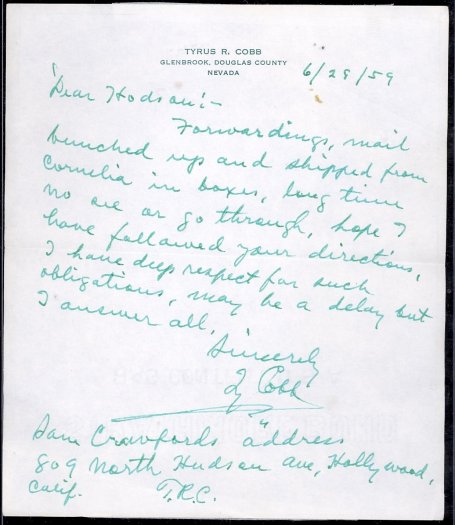 TYRUS R. COBB
GLENBROOK, DOUGLAS COUNTY
NEVADA
6/28/59
Dear Hodson:-
Forwardings, mail
bunched up and shipped from
Cornelia in boxes, long time
no see or go through, hope I
have followed your directions,
I have deep respect for such
obligations, may be a delay but
I answer all,
Sincerely
Ty Cobb
Sam Crawfords "address
809 North Hudson ave, Hollywood,
Calif. T.R.C.